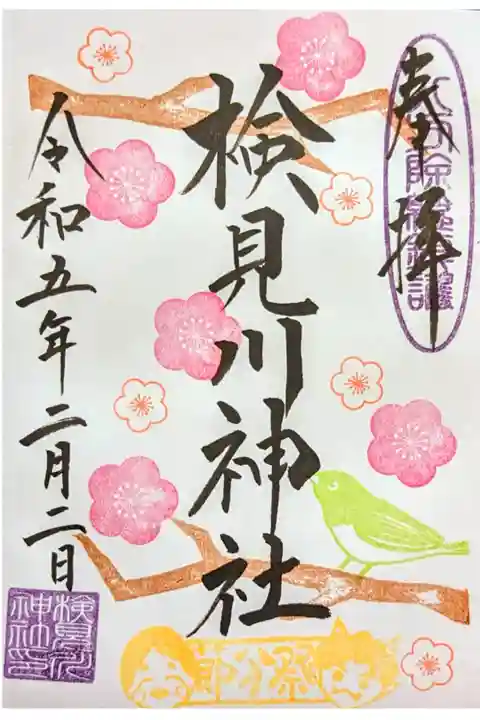 奉拝
検見川神社
令和五年二月二日
検見川
神社印
節分祭